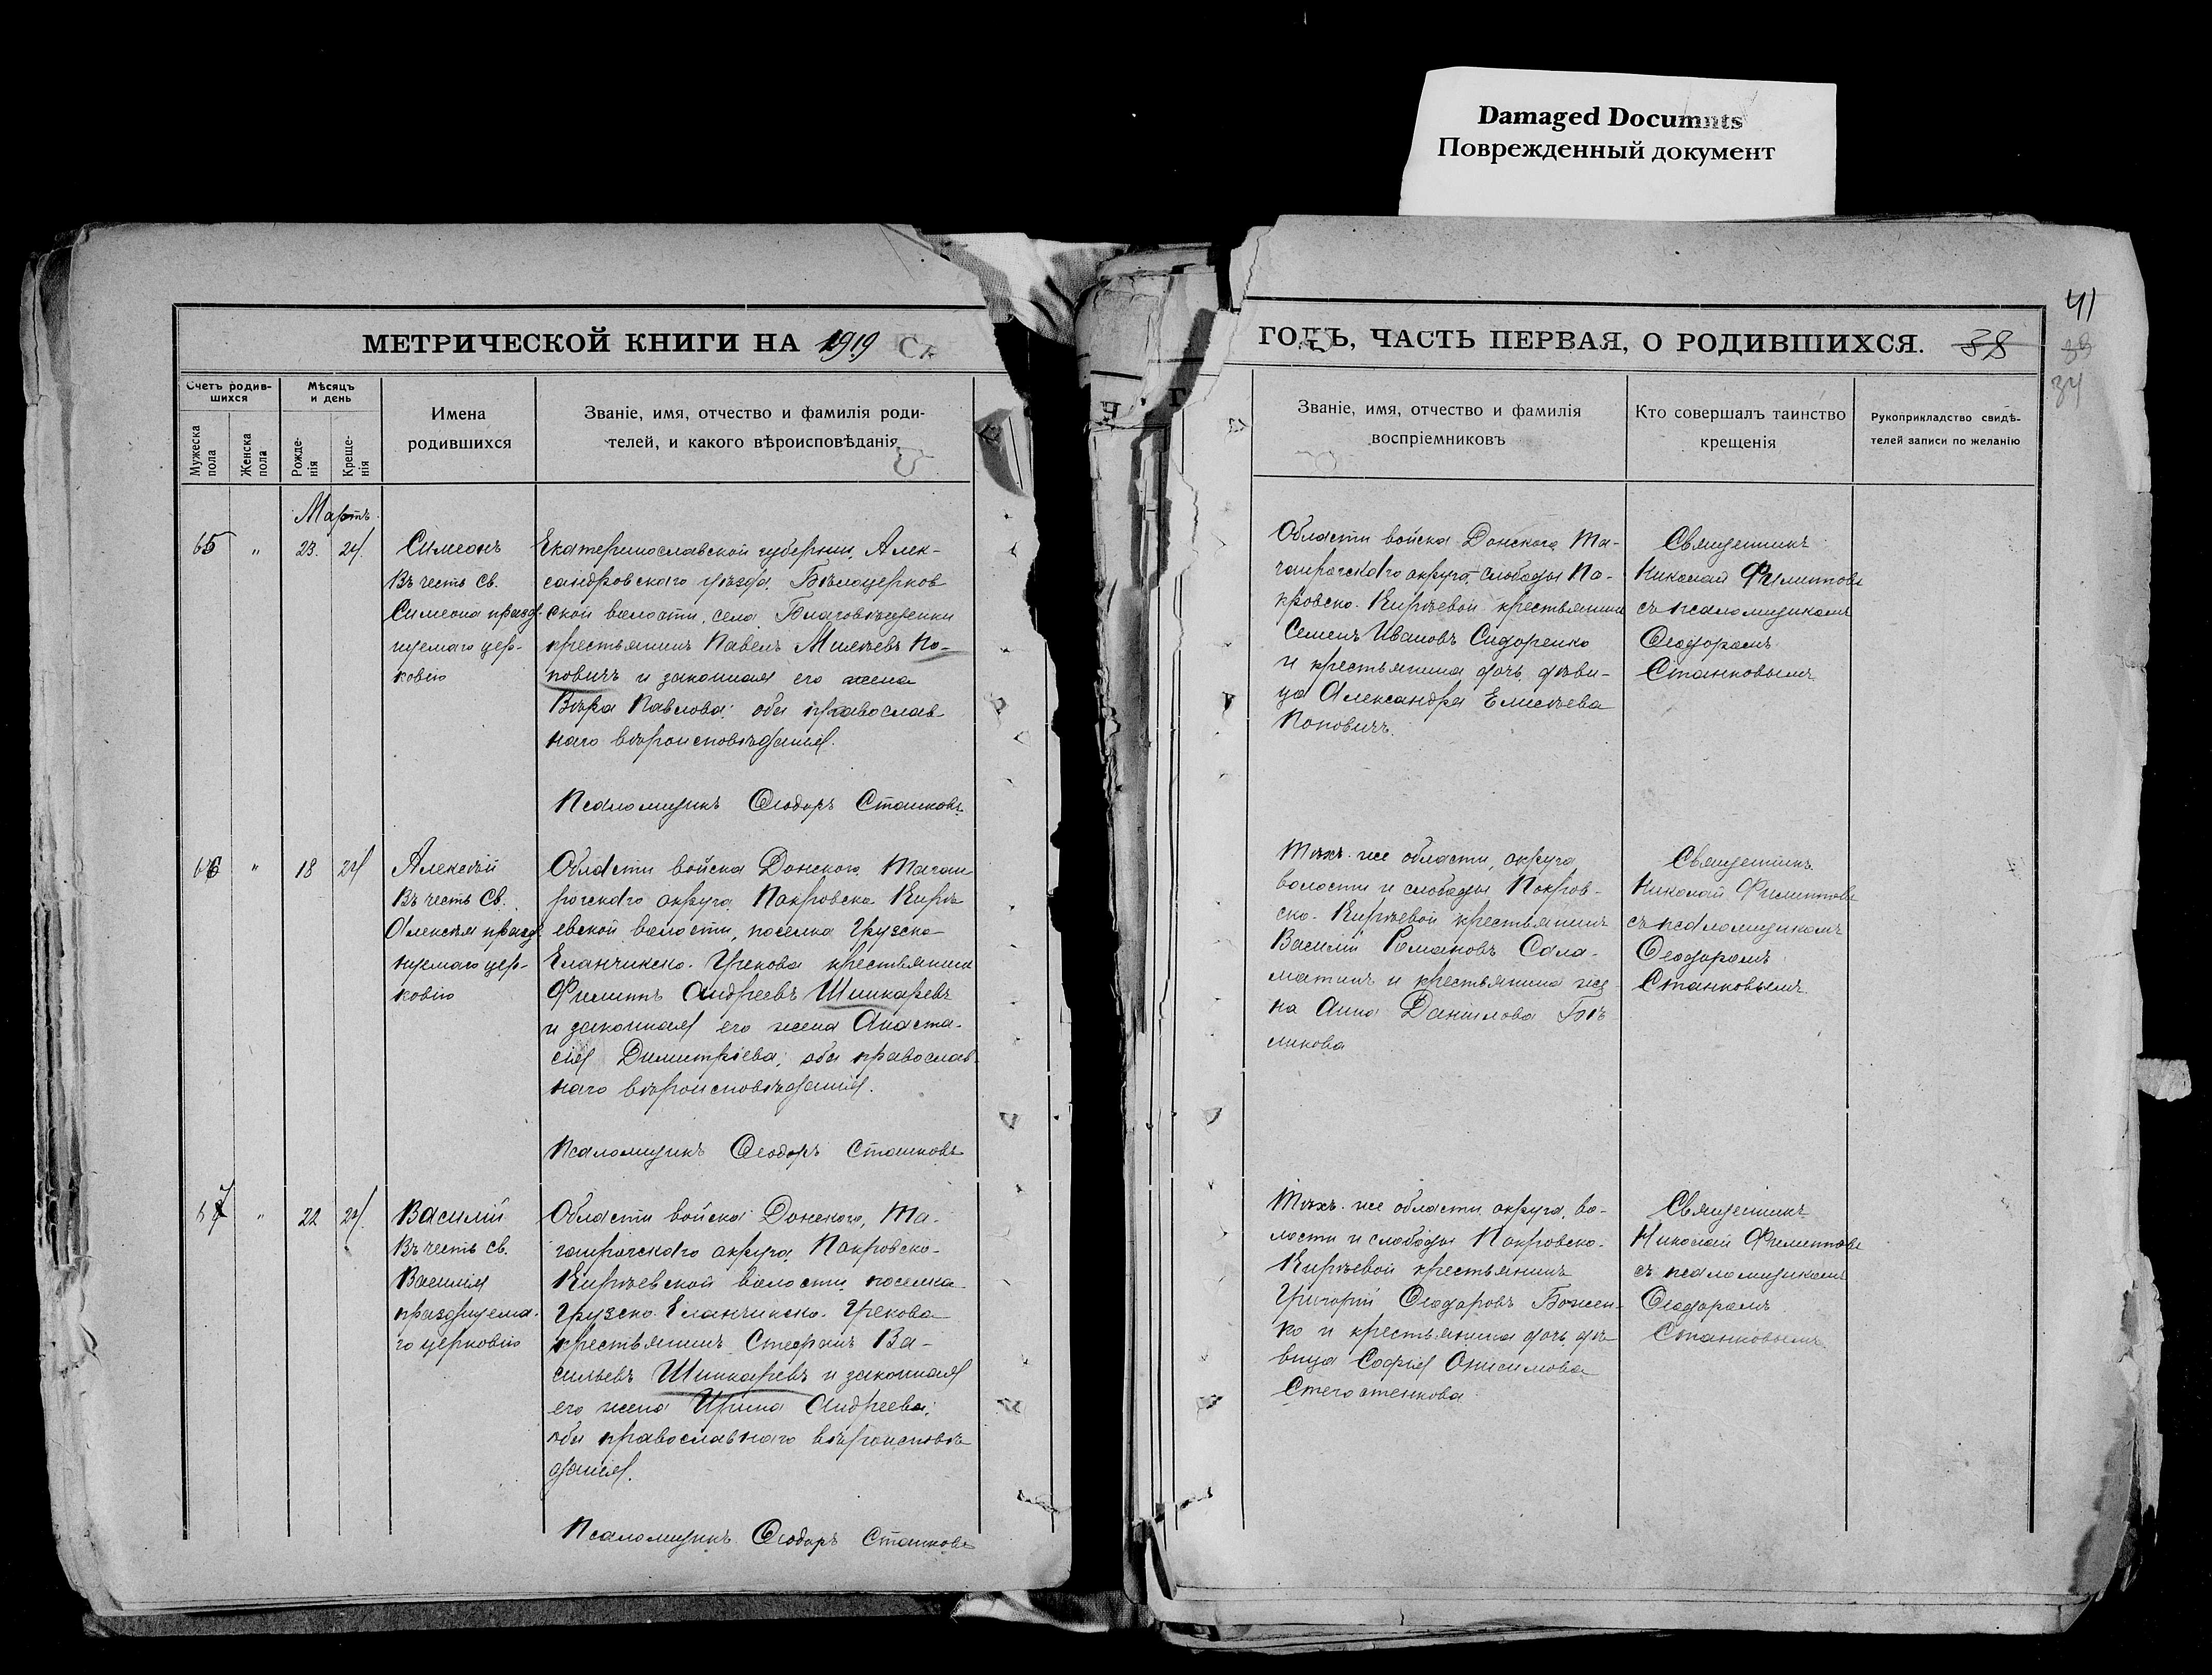 Damaged Documnts
Поврежденный документ
41
МЕТРИЧЕСКОЙ КНИГИ НА 1919
ГОДЪ, ЧАСТЬ ПЕРВАЯ, О РОДИВШИХСЯ. 38
39
34
Счетъ родив-
шихся
Мужеска пола
Женска пола
Мѣсяцъ
и день
Рожде-
нія
Креще-
нія
Имена
родившихся
Званіе, имя, отчество и фамилія роди-
телей, и какого вѣроисповѣданія
Званіе, имя, отчество и фамилія
воспріемниковъ
Кто совершалъ таинство
крещенія
Рукоприкладство свидѣ-
телей записи по желанію
Мартъ
65 " 23. 24.
Симеонъ
Въ честь св.
Симеона празд-
нуемаго цер-
ковію
Екатеринославской губерніи, Алек-
сандровскаго уѣзда, Бѣлоцерков
ской волости, села Благовѣщенки
крестьянинъ Павелъ Елисѣевъ По-
повичъ и законная его жена
Вѣра Павлова; оба православ
наго вѣроисповѣданія.
Псаломщикъ Ѳеодоръ Станковъ
Области войска Донского, Та-
ганрогскаго округа, слободы По-
кровско-Кирѣевой крестьянинъ
Семенъ Ивановъ Сидоренко
и крестьянина дочь дѣви-
ца Александра Елисѣева
Поповичъ.
Священникъ
Николай Филипповъ
съ псаломщикомъ
Ѳеодоромъ
Станковымъ.
66 " 18 24
Алексѣй
Въ честь Св.
Алексѣя празд-
нуемаго цер-
ковію
Области войска Донского, Таган
рогскаго округа, Покровско-Кирѣ
евской волости, поселка Грузско-
Еланчикско-Грекова крестьянинъ
Филиппъ Андреевъ Шинкаревъ
и законная его жена Анаста-
сія Димитріева; оба православ
наго вѣроисповѣданія.
Псаломщикъ Ѳеодоръ Станковъ
Тѣхъ-же области, округа
волости и слободы Покров-
ско-Кирѣевой крестьянинъ
Василій Романовъ Сала-
матинъ и крестьянина же-
на Анна Данилова Бѣ
ликова
Священникъ
Николай Филипповъ
съ псаломщикомъ
Ѳеодоромъ
Станковымъ.
67 " 22 24.
Василій
Въ честь св.
Василія
празднуема-
го церковію
Области войска Донского, Та-
ганрогскаго округа, Покровско-
Кирѣевской волости, поселка
Грузско-Еланчикско-Грекова
крестьянинъ Стефанъ Ва-
сильевъ Шинкаревъ и законная
его жена Ирина Андреева;
оба православнаго вѣроисповѣ
данія.
Псаломщикъ Ѳеодоръ Станковъ
Тѣхъ-же области, округа, во-
лости и слободы Покровско-
Кирѣевой крестьянинъ
Григорій Ѳеодоровъ Божен-
ко и крестьянина дочь дѣ-
вица Софія Онисимова
Священникъ
Николай Филипповъ
съ псаломщикомъ
Ѳеодоромъ
Станковымъ.